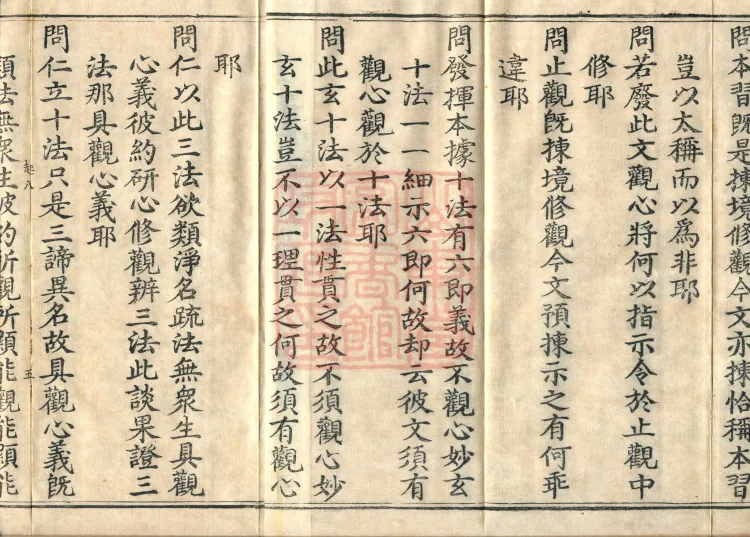 問本習旣是揀境修觀今文亦揀恰稱本習
豈以太稱而以爲非耶
問若廢此文觀心將何以指示令於止觀中
修耶
問止觀旣揀境修觀今文預揀示之有何乖
違耶
問發揮本據十法有六即義故不觀心妙玄
十法一一細示六即何故却云彼文須有
觀心觀於十法耶
問此玄十法以一法性貫之故不須觀心妙
玄十法豈不以一理貫之何故須有觀心
耶
問仁以此三法欲類淨名䟽法無衆生具觀
心義彼約研心修觀辨三法此談果證三
法那具觀心義耶
問仁立十法只是三諦異名故具觀心義旣
起八
五
類法無衆生彼約所觀所顯能觀能顯能